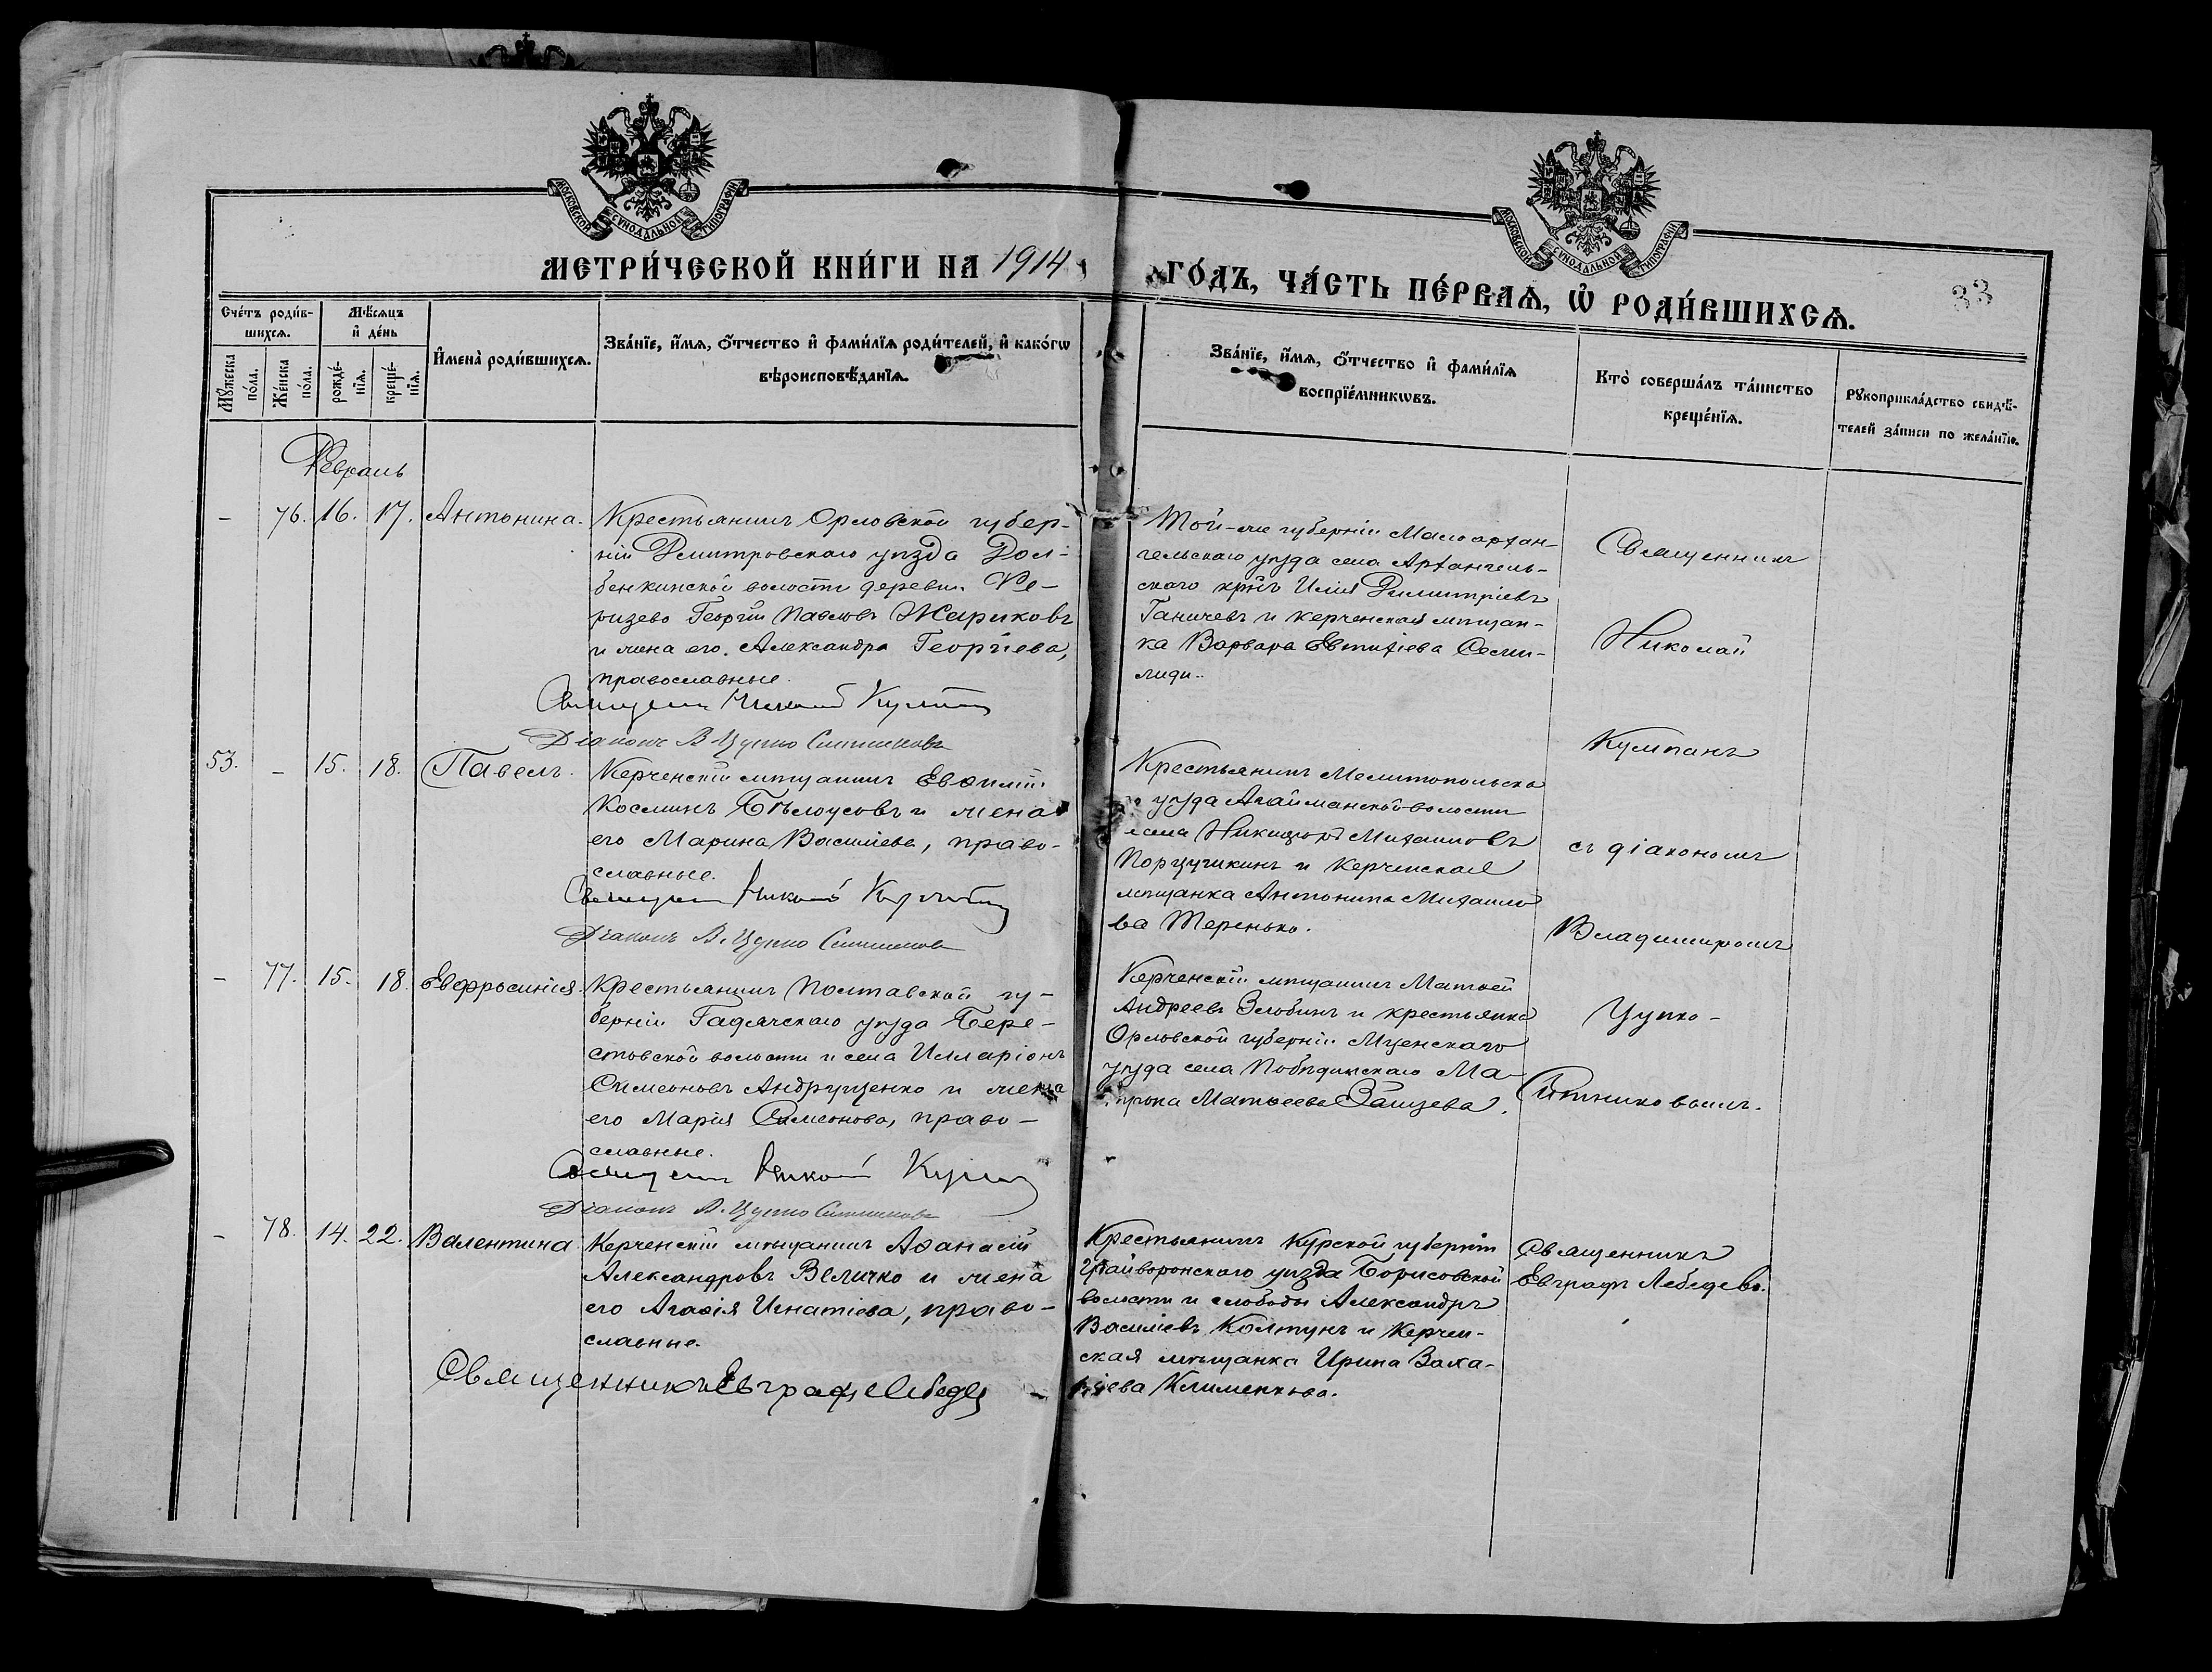 МОСКОВСКОЙ СѴНОДАЛЬНОЙ ТИПОГРАФІИ
МОСКОВСКОЙ СѴНОДАЛЬНОЙ ТИПОГРАФІИ
МЕТРИ́ЧЕСКОЙ КНИ́ГИ НА 1914
ГО́ДЪ, ЧА́СТЬ ПЕ́РВАѦ, Ѡ҆ РОДИ́ВШИХСѦ.
33
Сче́тъ роди́в-
шихсѧ.
Мѣ́сѧцъ
и҆ де́нь
Мꙋ́жеска
по́ла.
Же́нска
по́ла.
рожде́-
нїѧ.
креще́-
нїѧ.
И҆мена̀ роди́вшихсѧ.
Зва́нїе, и҆́мѧ, ѻ҆́тчество и҆ фами́лїѧ роди́телей, и҆ како́гѡ
вѣроисповѣ́данїѧ.
Зва́нїе, и҆́мѧ, ѻ҆́тчество и҆ фами́лїѧ
воспрїе́мникѡвъ.
Кто̀ соверша́лъ та́инство
креще́нїѧ.
Рꙋкоприкла́дство свидѣ́-
телей за́писи по жела́нїю.
Февраль
– 76. 16. 17. Антонина.
Крестьянинъ Орловской губер-
ніи Дмитровскаго уѣзда Дол-
бенкинской волости деревни Ре-
Георгій Павловъ Жариковъ
и жена его Александра Георгіева,
православные.
Священникъ Николай Кумпанъ
Діаконъ В. Цупко Ситниковъ
Той-же губерніи Малоархан-
гельскаго уѣзда села Архангель-
скаго кр-нъ Илія Димитріевъ
Ганичевъ и керченская мѣщан-
ка Варвара Евтихіева Семи-
лиди.
Священникъ
Николай
Кумпанъ
съ діакономъ
Владимиромъ
Цупко-
Ситниковымъ.
53. – 15. 18. Павелъ.
Керченскій мѣщанинъ Евѳимій
Косминъ Бѣлоусовъ и жена
его Марина Василіева, право-
славные.
Священникъ Николай Кумпанъ
Діаконъ В. Цупко Ситниковъ
Крестьянинъ Мелитопольска
уѣзда Агайманской волости
села Никифоръ Михаиловъ
Поручикинъ и Керченская
мѣщанка Антонина Михаило
ва Теренько.
– 77. 15. 18. Евфросинія.
Крестьянинъ Полтавской гу-
берніи Гадячскаго уѣзда Бере-
стовской волости и села Илларіонъ
Симеоновъ Андрущенко и жена
его Марія Симеонова, право-
славные.
Священникъ Николай Кумпанъ
Діаконъ В. Цупко Ситниковъ
Керченскій мѣщанинъ Матѳей
Андреевъ Злобинъ и крестьянка
Орловской губерніи Мценскаго
уѣзда села Ма-
трона Матѳеева Зайцева.
– 78. 14. 22. Валентина
Керченскій мѣщанинъ Аѳанасій
Александровъ Величко и жена
его Агаѳія Игнатіева, право-
славные.
Священникъ Евграфъ Лебедев
Крестьянинъ Курской губерніи
Грайворонскаго уѣзда Борисовской
волости и слободы Александръ
Василіевъ Колтунъ и Керчен-
ская мѣщанка Ирина Заха-
ріева Клименкова.
Священникъ
Евграфъ Лебедевъ.